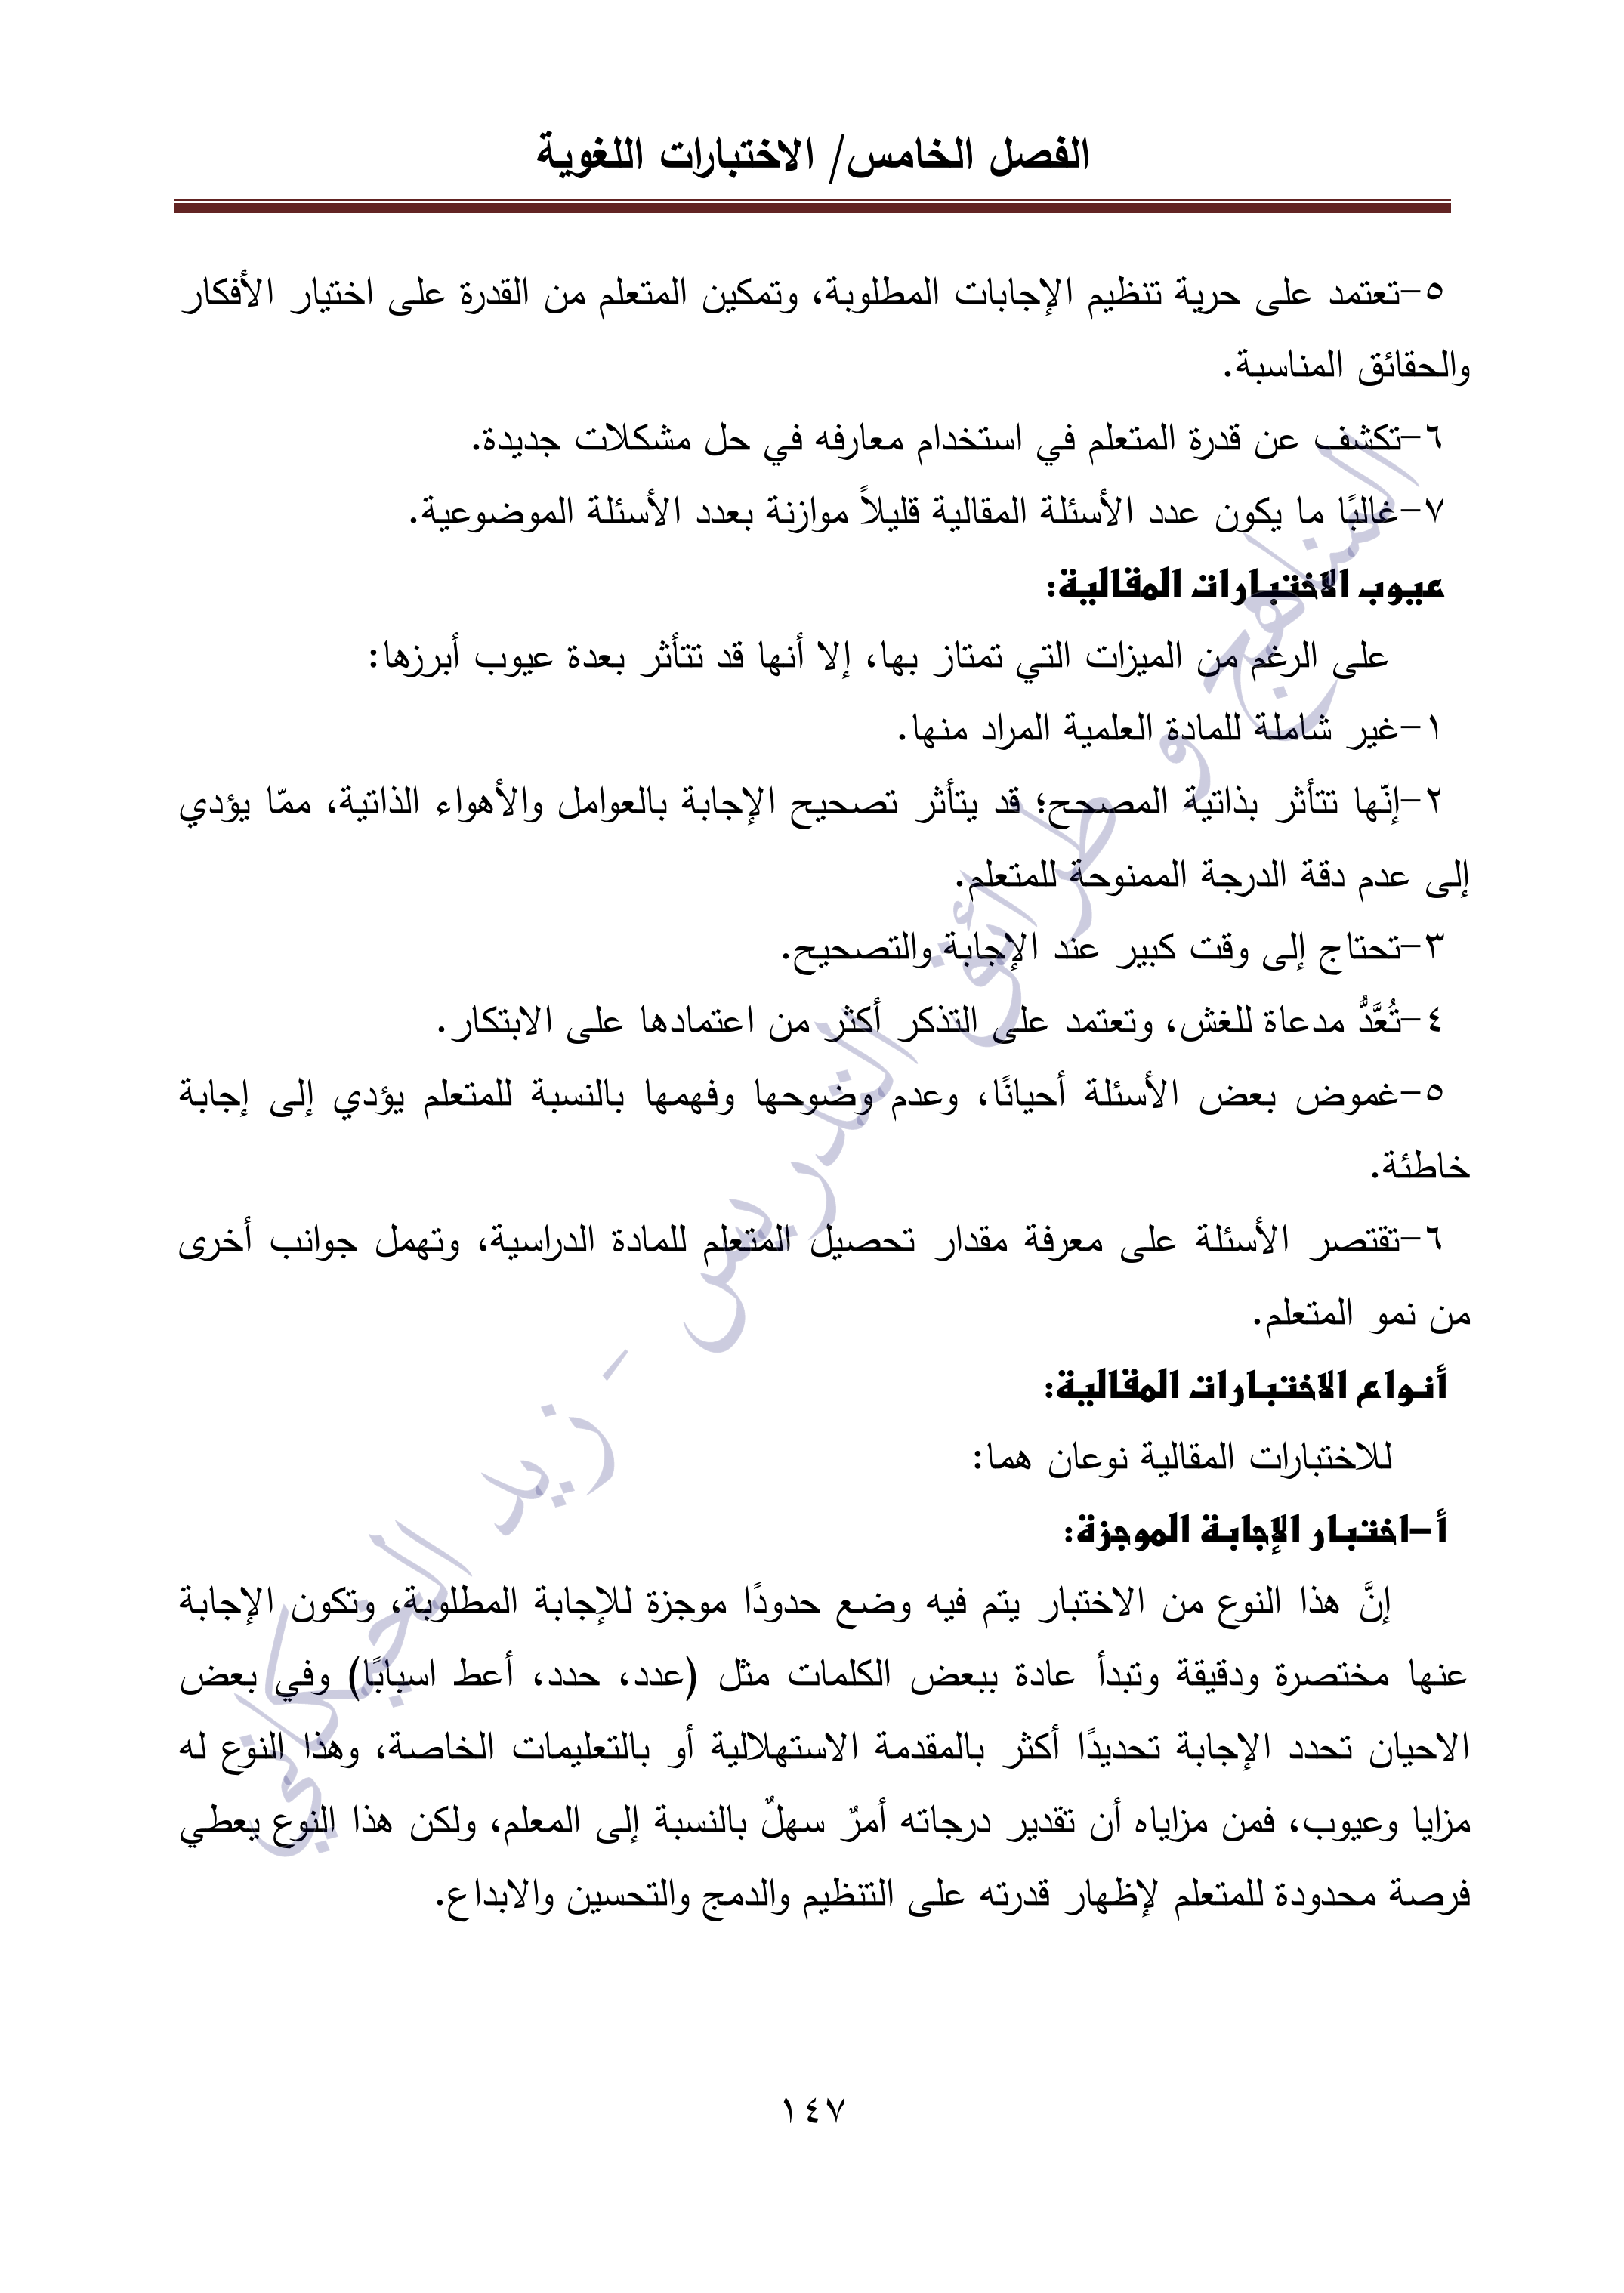 الفصل الخامس/ الاختبارات اللغوية
٥-تعتمد على حرية تنظيم الإجابات المطلوبة، وتمكين المتعلم من القدرة على اختيار الأفكار
والحقائق المناسبة.
٦-تكشف عن قدرة المتعلم في استخدام معارفه في حل مشكلات جديدة.
٧-غالبًا ما يكون عدد الأسئلة المقالية قليلاً موازنة بعدد الأسئلة الموضوعية.
عيوب الاختبارات المقالية:
على الرغم من الميزات التي تمتاز بها، إلا أنها قد تتأثر بعدة عيوب أبرزها:
١-غير شاملة للمادة العلمية المراد منها.
٢-إنّها تتأثر بذاتية المصحح؛ قد يتأثر تصحيح الإجابة بالعوامل والأهواء الذاتية، ممّا يؤدي
إلى عدم دقة الدرجة الممنوحة للمتعلم.
٣-تحتاج إلى وقت كبير عند الإجابة والتصحيح.
٤-تُعَّدُّ مدعاة للغش، وتعتمد على التذكر أكثر من اعتمادها على الابتكار.
٥-غموض بعض الأسئلة أحيانًا، وعدم وضوحها وفهمها بالنسبة للمتعلم يؤدي إلى إجابة
خاطئة.
٦-تقتصر الأسئلة على معرفة مقدار تحصيل المتعلم للمادة الدراسية، وتهمل جوانب أخرى
من نمو المتعلم.
أنواع الاختبارات المقالية:
للاختبارات المقالية نوعان هما:
أ-اختبار الإجابة الموجزة:
إنَّ هذا النوع من الاختبار يتم فيه وضع حدودًا موجزة للإجابة المطلوبة، وتكون الإجابة
عنها مختصرة ودقيقة وتبدأ عادة ببعض الكلمات مثل (عدد، حدد، أعط اسبابًا) وفي بعض
الاحيان تحدد الإجابة تحديدًا أكثر بالمقدمة الاستهلالية أو بالتعليمات الخاصة، وهذا النوع له
مزايا وعيوب، فمن مزاياه أن تقدير درجاته أمرٌ سهلٌ بالنسبة إلى المعلم، ولكن هذا النوع يعطي
فرصة محدودة للمتعلم لإظهار قدرته على التنظيم والدمج والتحسين والابداع.
المناهج و طرائق التدريس - زيد الخيكاني
١٤٧